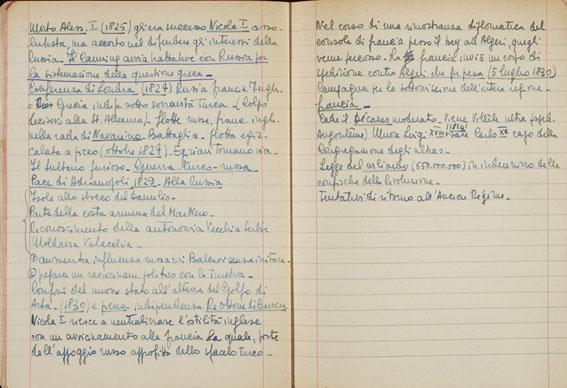 Morto Aless. I (1825) gli era successo Nicola I asso-
lutista, ma accorto nel difendere gli interessi della
Russia. Il Canning avvia trattative con Russia per
la sistemazione della questione greca -
Conferenza di Londra (1827) Russia Francia Ingh.
Grecia indip. sotto sovranità turca - (Colpo
decisivo alla St. Alleanza) - flotte russe, franc. ingl.
nella rada di Navarino. Battaglia. flotta egiz.
calata a picco (ottobre 1827) - Egiziani tornano via -
Il sultano furioso - Guerra turco-russa -
Pace di Adrianopoli 1829 - Alla Russia
Isole allo sbocco del Danubio -
Parte della costa armena del Mar Nero -
Riconoscimento della autonomia Vecchia Serbia
Moldavia Valacchia -
aumenta influenza russa nei Balcani
Prepara un ravvicinam. politico con la
Confini del nuovo stato all'altezza del Golfo di
Arta - (1830) e piena indipendenza Re Ottone di Baviera
Nicola I riesce a neutralizzare l'ostilità inglese
con un avvicinamento alla Francia la quale, forte
dell'appoggio russo approfitta dello sfacelo turco -
Nel corso di una rimostranza diplomatica del
console di Francia presso il bey ad Algeri, quegli
viene percosso. La Francia inviò un corpo di
spedizione contro Algeri che fu presa (5 luglio 1830)
Campagna per la sottomissione dell'intera regione -
Francia -
Cade il Decazes moderato. Viene Villèle ultra
Angoulême) Muore Luigi XVIII (1824) sale Carlo X capo della
Congregazione degli ultras -
Legge del miliardo (650.000.000) in indennizzo delle
confische della Rivoluzione -
Tentativi di ritorno all'Ancien Régime -